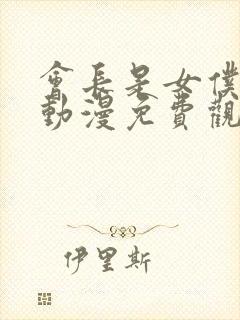 會長是女僕
動漫免費觀
伊里斯